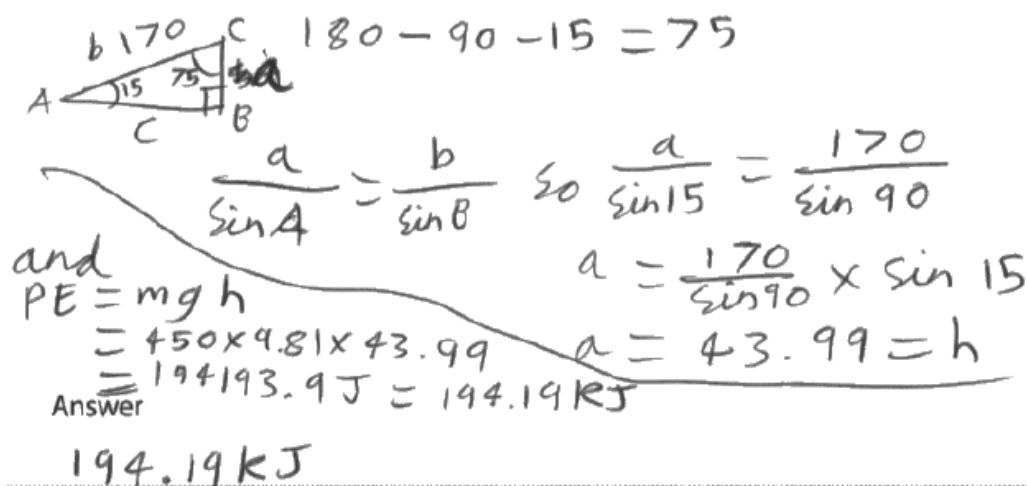 b 170 C 180 - 90 - 15 = 75
A 15 75 a
C B
a/sin A = b/sin B so a/sin 15 = 170/sin 90
a = 170/sin 90 × sin 15
a = 43.99 = h
and
PE = mgh
= 450 × 9.81 × 43.99
= 194193.9 J = 194.19 kJ
Answer
194.19 kJ